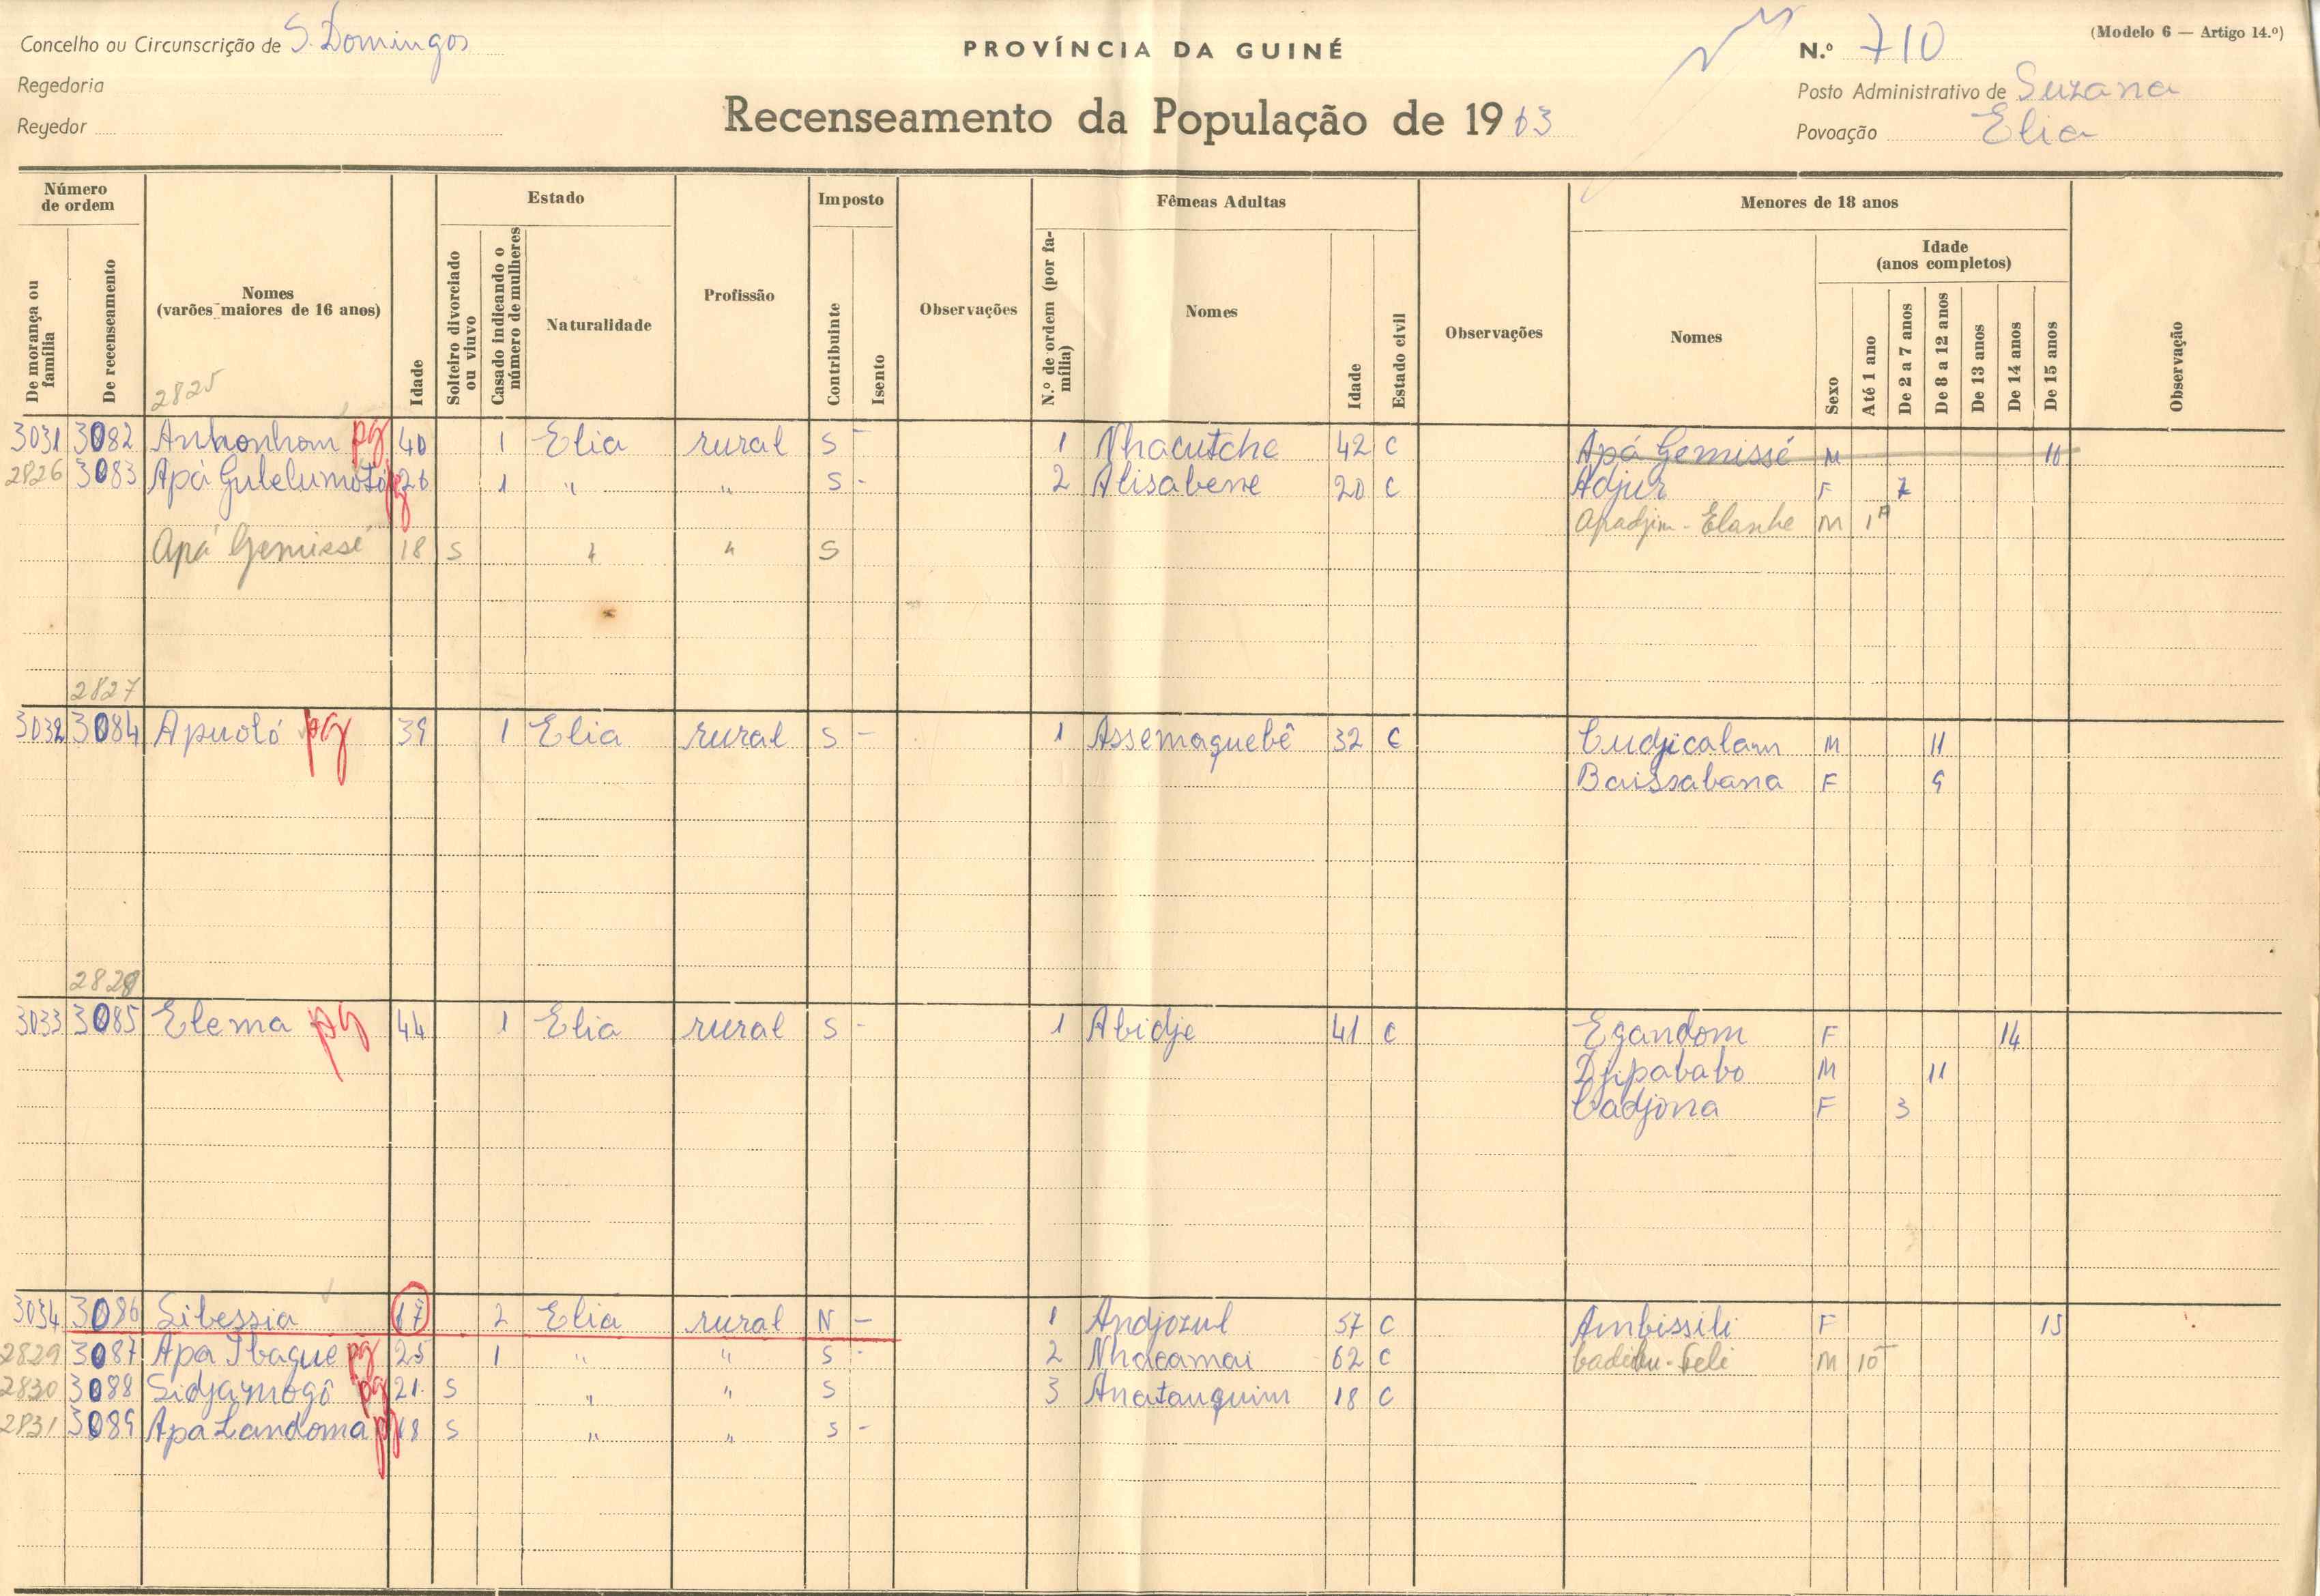 Concelho ou Circunscrição de S. Domingos
PROVÍNCIA DA GUINÉ
N.º 710
(Modelo 6 — Artigo 14.º)
Regedoria
Posto Administrativo de Suzana
Regedor
Recenseamento da População de 1963
Povoação Elia
Número de ordem
Estado
Imposto
Fêmeas Adultas
Menores de 18 anos
De morança ou família
De recenseamento
Nomes (varões maiores de 16 anos)
Idade
Solteiro divorciado ou viuvo
Casado indicando o número de mulheres
Naturalidade
Profissão
Contribuinte
Isento
Observações
N.º de ordem (por família)
Nomes
Idade
Estado civil
Observações
Nomes
Sexo
Idade (anos completos)
Até 1 ano
De 2 a 7 anos
De 8 a 12 anos
De 13 anos
De 14 anos
De 15 anos
Observação
2825
3031 3082 Anhonham pg 40 1 Elia rural S - 1 Nhacutche 42 C Apá Gemissé M 16
2826 3083 Apá Gulelumotó pg 26 1 " " S - 2 Alisabene 20 C Adjur F 7
Apadjim - Elanhe M 1A
Apá Gemissé 18 S " " S
2827
3032 3084 Apuoló pg 39 1 Elia rural S - 1 Assemaquebê 32 C Cudjicalam M 11
Baissabana F 9
2828
3033 3085 Elema pg 44 1 Elia rural S - 1 Abidje 41 C Egandom F 14
Djipababo M 11
Cadjona F 3
3034 3086 Sibessia 67 2 Elia rural N - 1 Andjozul 57 C Ambissili F 15
2829 3087 Apa Ibague pg 25 1 " " S - 2 Nhacamai 62 C M 10
2830 3088 Sidjamogô pg 21 S " " S 3 Anatauquim 18 C
2831 3089 Apa Landoma pg 18 S " " S -